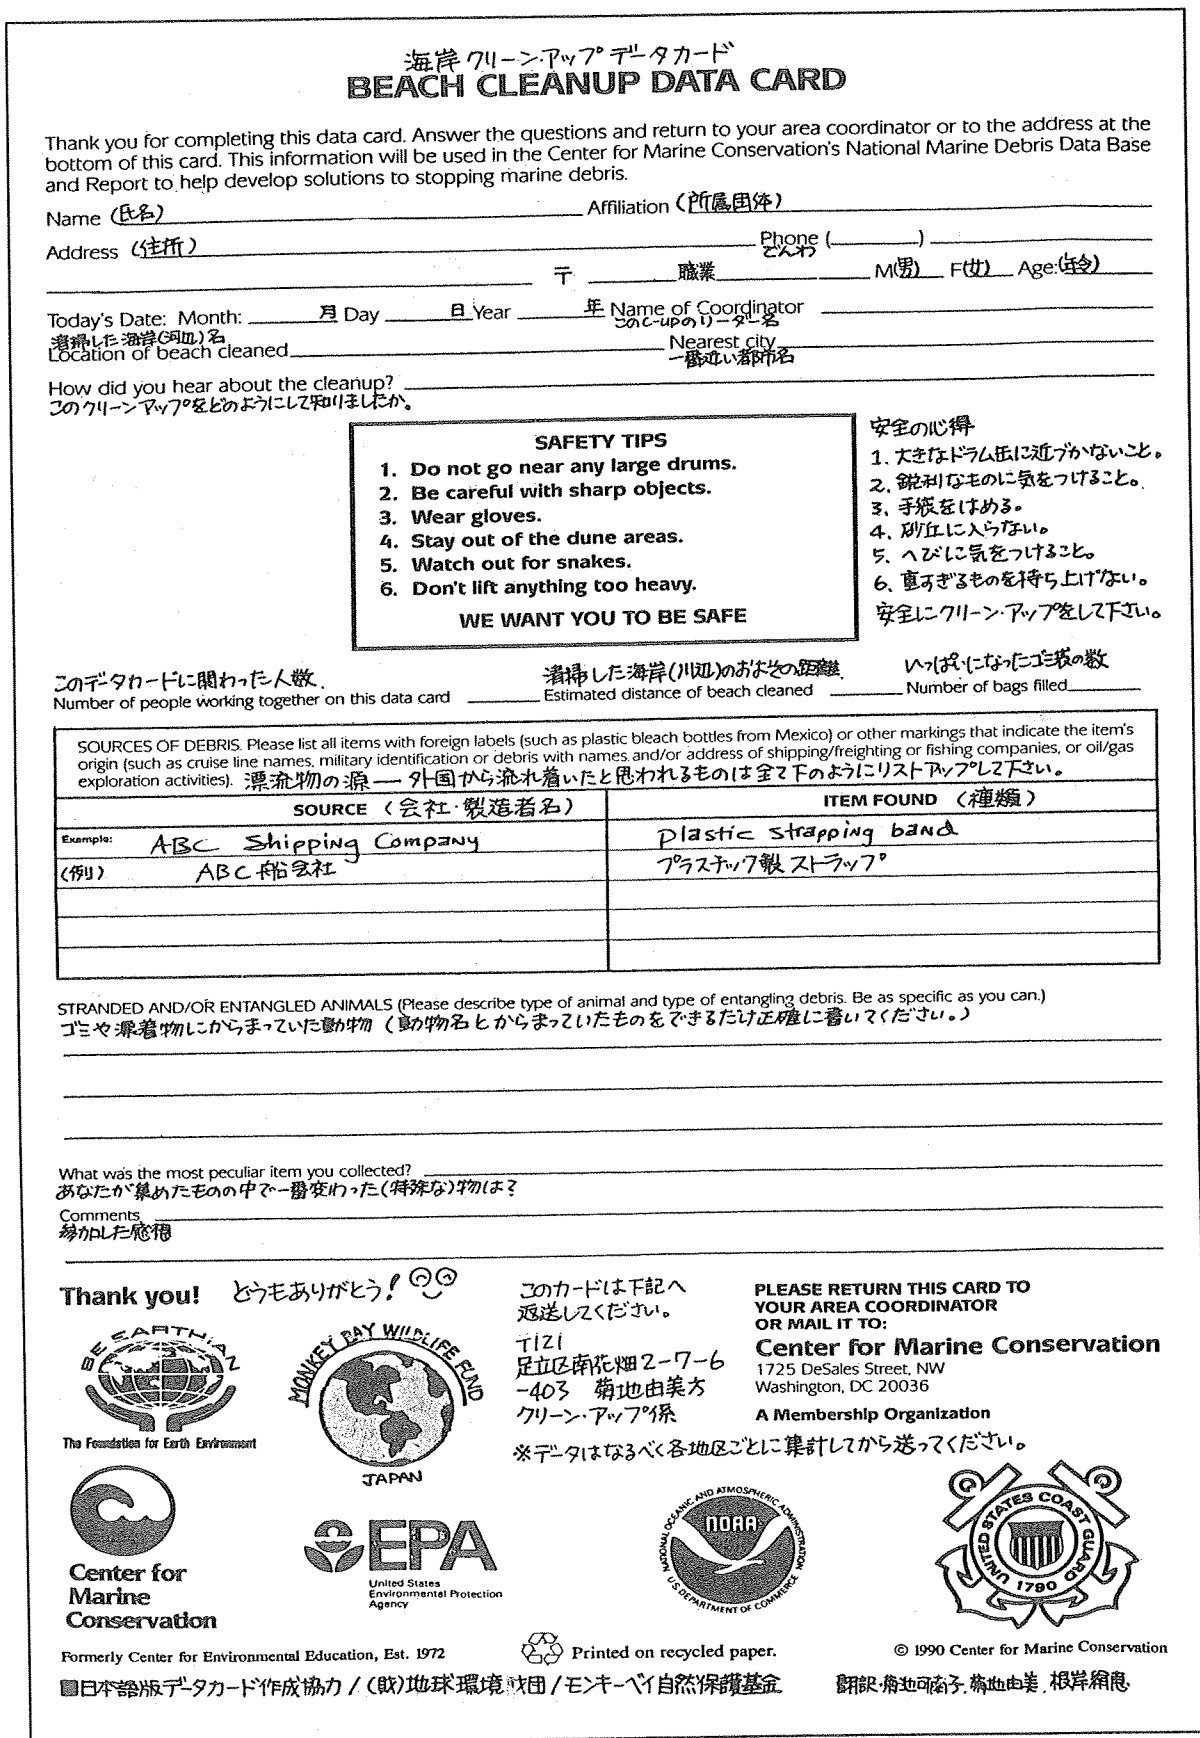 海岸クリーン・アップデータカード
BEACH CLEANUP DATA CARD
Thank you for completing this data card. Answer the questions and return to your area coordinator or to the address at the
bottom of this card. This information will be used in the Center for Marine Conservation's National Marine Debris Data Base
and Report to help develop solutions to stopping marine debris.
Name (氏名) Affiliation (所属団体)
Address (住所) Phone ( )
でんわ
〒 職業 M(男) F(女) Age:(年令)
Today's Date: Month: 月 Day 日 Year 年 Name of Coordinator
このC-UPのリーダー名
清掃した海岸(河辺)名
Location of beach cleaned Nearest city
一番近い都市名
How did you hear about the cleanup?
このクリーンアップをどのようにして知りましたか。
SAFETY TIPS
1. Do not go near any large drums.
2. Be careful with sharp objects.
3. Wear gloves.
4. Stay out of the dune areas.
5. Watch out for snakes.
6. Don't lift anything too heavy.
WE WANT YOU TO BE SAFE
安全の心得
1. 大きなドラム缶に近づかないこと。
2. 鋭利なものに気をつけること。
3. 手袋をはめる。
4. 砂丘に入らない。
5. へびに気をつけること。
6. 重すぎるものを持ち上げない。
安全にクリーン・アップをして下さい。
このデータカードに関わった人数 清掃した海岸(川辺)のおよその距離 いっぱいになったゴミ袋の数
Number of people working together on this data card Estimated distance of beach cleaned Number of bags filled
SOURCES OF DEBRIS. Please list all items with foreign labels (such as plastic bleach bottles from Mexico) or other markings that indicate the item's
origin (such as cruise line names, military identification or debris with names and/or address of shipping/freighting or fishing companies, or oil/gas
exploration activities). 漂流物の源 — 外国から流れ着いたと思われるものは全て下のようにリストアップして下さい。
SOURCE (会社・製造者名) ITEM FOUND (種類)
Example: ABC Shipping Company Plastic strapping band
(例) ABC船会社 プラスチック製ストラップ
STRANDED AND/OR ENTANGLED ANIMALS (Please describe type of animal and type of entangling debris. Be as specific as you can.)
ゴミや漂着物にからまっていた動物 (動物名とからまっていたものをできるだけ正確に書いてください。)
What was the most peculiar item you collected?
あなたが集めたものの中で一番変わった(特殊な)物は?
Comments
参加した感想
Thank you! どうもありがとう!
このカードは下記へ
返送してください。
〒121
足立区南花畑2-7-6
-403 菊地由美方
クリーン・アップ係
PLEASE RETURN THIS CARD TO
YOUR AREA COORDINATOR
OR MAIL IT TO:
Center for Marine Conservation
1725 DeSales Street, NW
Washington, DC 20036
A Membership Organization
※データはなるべく各地区ごとに集計してから送ってください。
BE EARTHIAN
The Foundation for Earth Environment
MONKEY BAY WILDLIFE FUND
JAPAN
Center for
Marine
Conservation
EPA
United States
Environmental Protection
Agency
NATIONAL OCEANIC AND ATMOSPHERIC ADMINISTRATION
NOAA
U.S. DEPARTMENT OF COMMERCE
UNITED STATES COAST GUARD
1790
Formerly Center for Environmental Education, Est. 1972 Printed on recycled paper. © 1990 Center for Marine Conservation
日本語版データカード作成協力 / (財)地球環境財団 / モンキーベイ自然保護基金 翻訳・菊地可南子, 菊地由美, 根岸絹恵